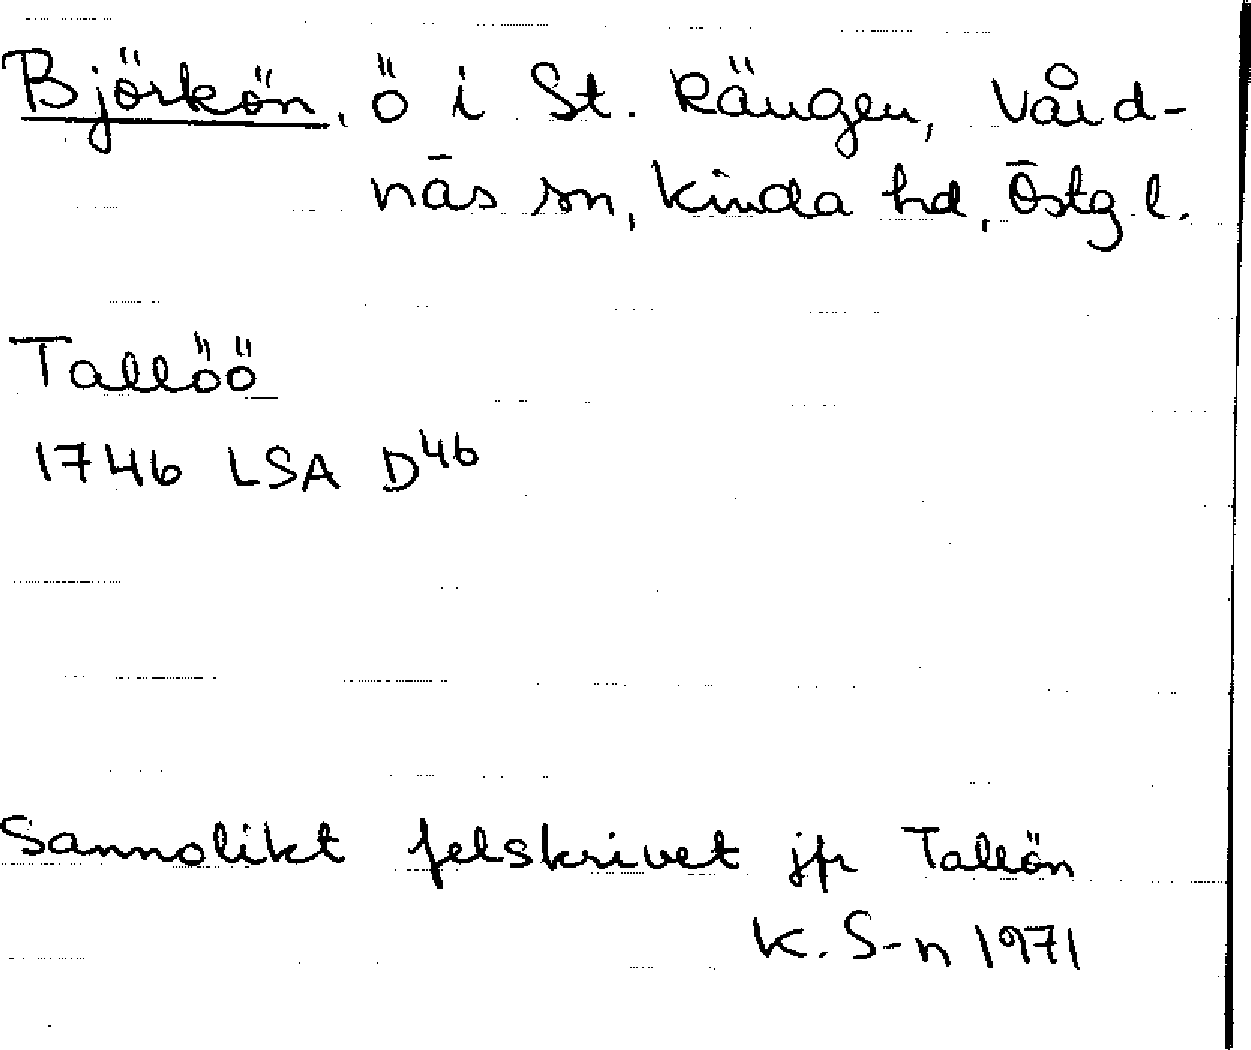 Björkön, ö i St. Rängen, Vård-
näs sn, Kinda hd, Östg. l.
Tallöö
1746 LSA D46
Sannolikt felskrivet jfr Tallön
K. S-n 1971